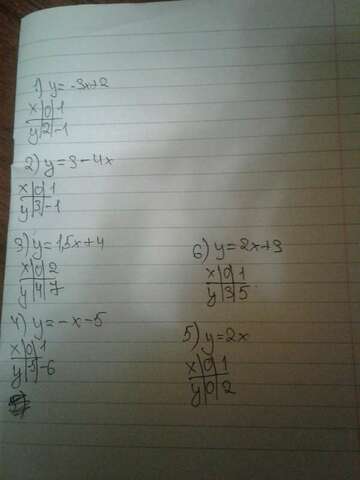 1) y = -3x+2
x | 0 | 1
y | 2 | -1
2) y = 3 - 4x
x | 0 | 1
y | 3 | -1
3) y = 1,5x + 4
x | 0 | 2
y | 4 | 7
4) y = -x - 5
x | 0 | 1
y | -5 | -6
6) y = 2x+3
x | 0 | 1
y | 3 | 5
5) y = 2x
x | 0 | 1
y | 0 | 2